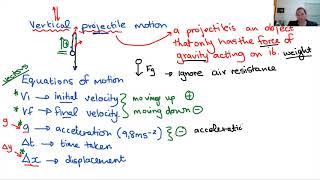 Vertical projectile motion
a projectile is an object
that only has the force of
gravity acting on it. weight
Fg → ignore air resistance
vectors
Equations of motion
* Vi → initial velocity } moving up ⊕
* Vf → final velocity } moving down ⊖
g * g → acceleration (9,8ms⁻²) } ⊖ acceleratio
Δt → time taken
Δy * Δx → displacement